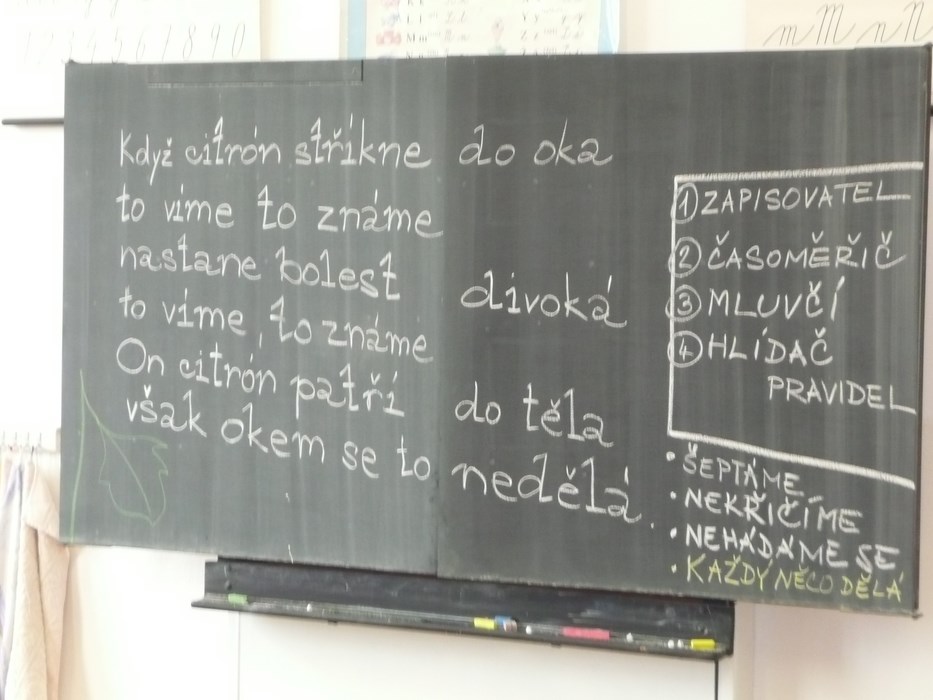 1 2 3 4 5 6 7 8 9 0
m M n N
Když citrón stříkne do oka
to víme to známe
nastane bolest divoká
to víme, to známe
On citrón patří do těla
však okem se to nedělá.
1 ZAPISOVATEL
2 ČASOMĚŘIČ
3 MLUVČÍ
4 HLÍDAČ
PRAVIDEL
• ŠEPTÁME
• NEKŘIČÍME
• NEHÁDÁME SE
• KAŽDÝ NĚCO DĚLÁ